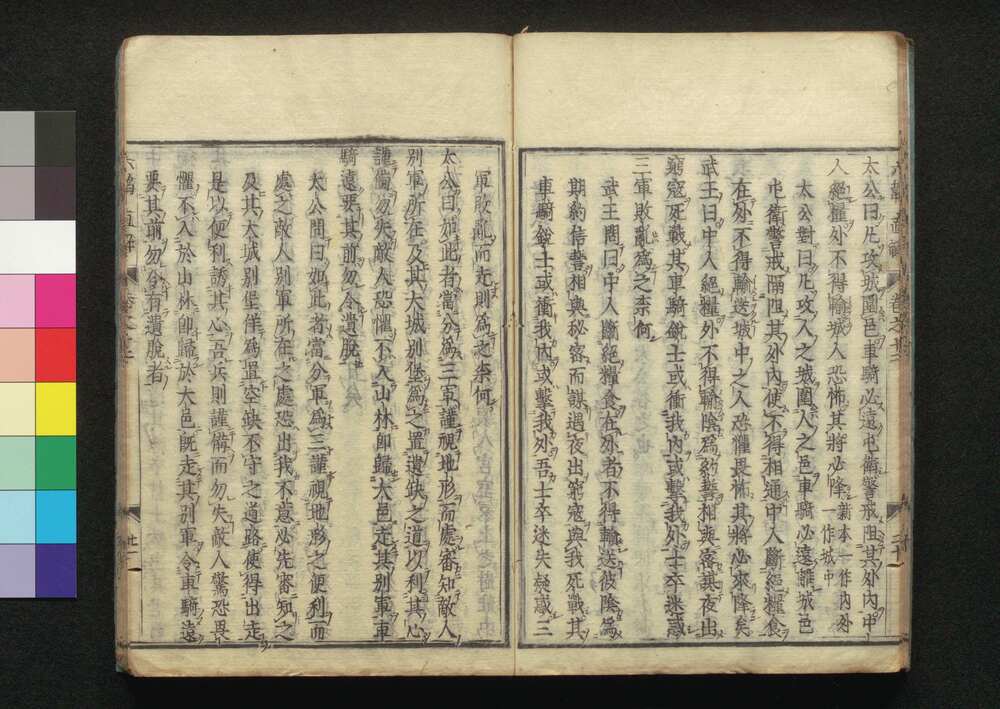 太公曰凡攻城圍邑車騎必遠屯衛警戒阻其外內中
人絕糧外不得輸城人恐怖其將必降新本一作內外一作城中
太公對曰凡攻人之城圍人之邑車騎必遠離城邑
屯衛警戒隔阻其外內使不得相通中人斷絕糧食
在外不得輸送城中之人恐懼畏怖其將必來降矣
武王曰中人絕糧外不得輸陰爲約誓相與密謀夜出
窮寇死戰其車騎銳士或衝我內或擊我外士卒迷惑
三軍敗亂爲之柰何
武王問曰中人斷絕糧食在外者不得輸送彼陰爲
期約信誓相與秘密而謀遇夜出窮寇與我死戰其
車騎銳士或衝我內或擊我外吾士卒迷失疑惑三
軍敗亂而走則爲之柰何
太公曰如此者當分爲三軍謹視地形而處審知敵人
別軍所在及其大城別堡爲之置遺缺之道以利其心
謹備勿失敵人恐懼不入山林卽歸大邑走其別軍車
騎遠要其前勿令遺脫
太公問曰如此者當分軍爲三謹視地形之便利而
處之敵人別軍所在之處恐出我不意必先審知之
及其大城別堡佯爲置空缺不守之道路使得出走
是以便利誘其心吾兵則謹備而勿失敵人驚恐畏
懼不入於山林卽歸於大邑旣走其別軍令車騎遠
要其前勿令有遺脫者
六韜 直解